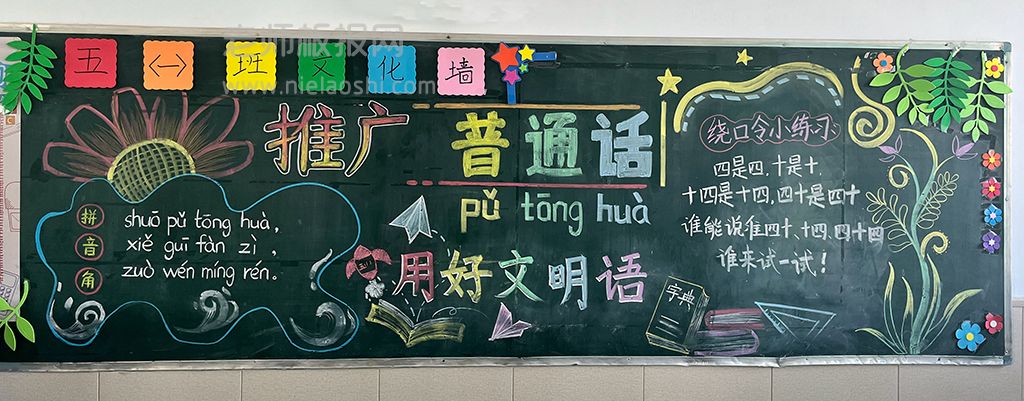 老师板报网
www.nielaoshi.com
五〈一〉班文化墙
推广 普通话
pǔ tōng huà
用好文明语
拼音角
shuō pǔ tōng huà，
xiě guī fàn zì，
zuò wén míng rén。
绕口令小练习
四是四，十是十，
十四是十四，四十是四十
谁能说准四十、十四、四十四
谁来试一试！
字典